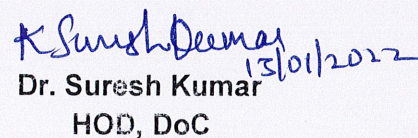 K Suresh Kumar
13/01/2022
Dr. Suresh Kumar
HOD, DoC